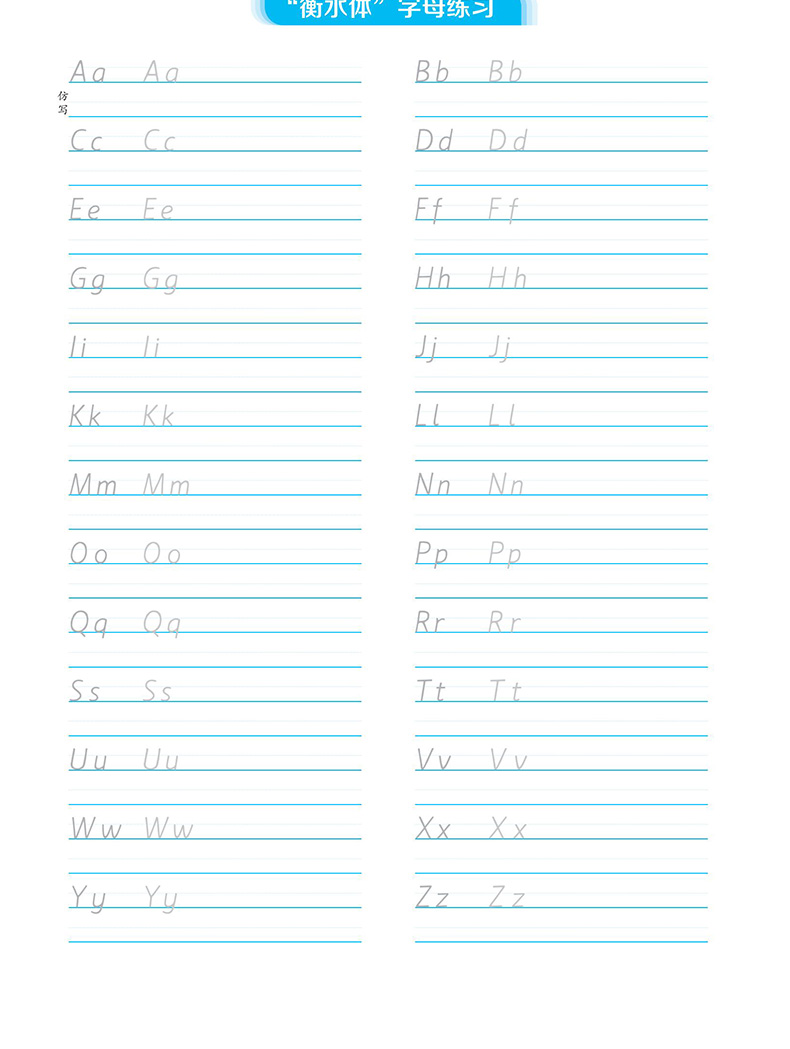 “衡水体”字母练习
Aa Aa Bb Bb
仿写
Cc Cc Dd Dd
Ee Ee Ff Ff
Gg Gg Hh Hh
Ii Ii Jj Jj
Kk Kk Ll Ll
Mm Mm Nn Nn
Oo Oo Pp Pp
Qq Qq Rr Rr
Ss Ss Tt Tt
Uu Uu Vv Vv
Ww Ww Xx Xx
Yy Yy Zz Zz